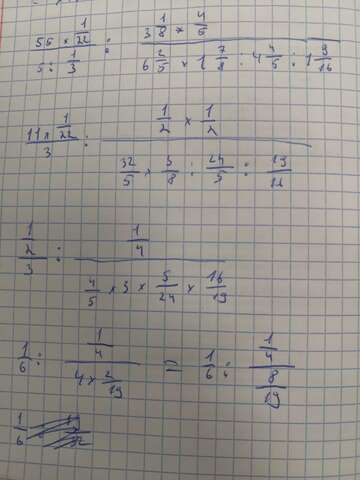 55 × 1/22 / 5 : 1/3 : 3 1/8 × 4/5 / 6 2/5 × 1 7/8 : 4 4/5 : 1 3/16
11 × 1/22 / 3 : 1/2 × 1/2 / 32/5 × 3/8 : 24/5 : 19/16
1/2 / 3 : 1/4 / 4/5 × 3 × 5/24 × 16/19
1/6 : 1/4 / 4 × 2/19 = 1/6 : 1/4 / 8/19
1/6